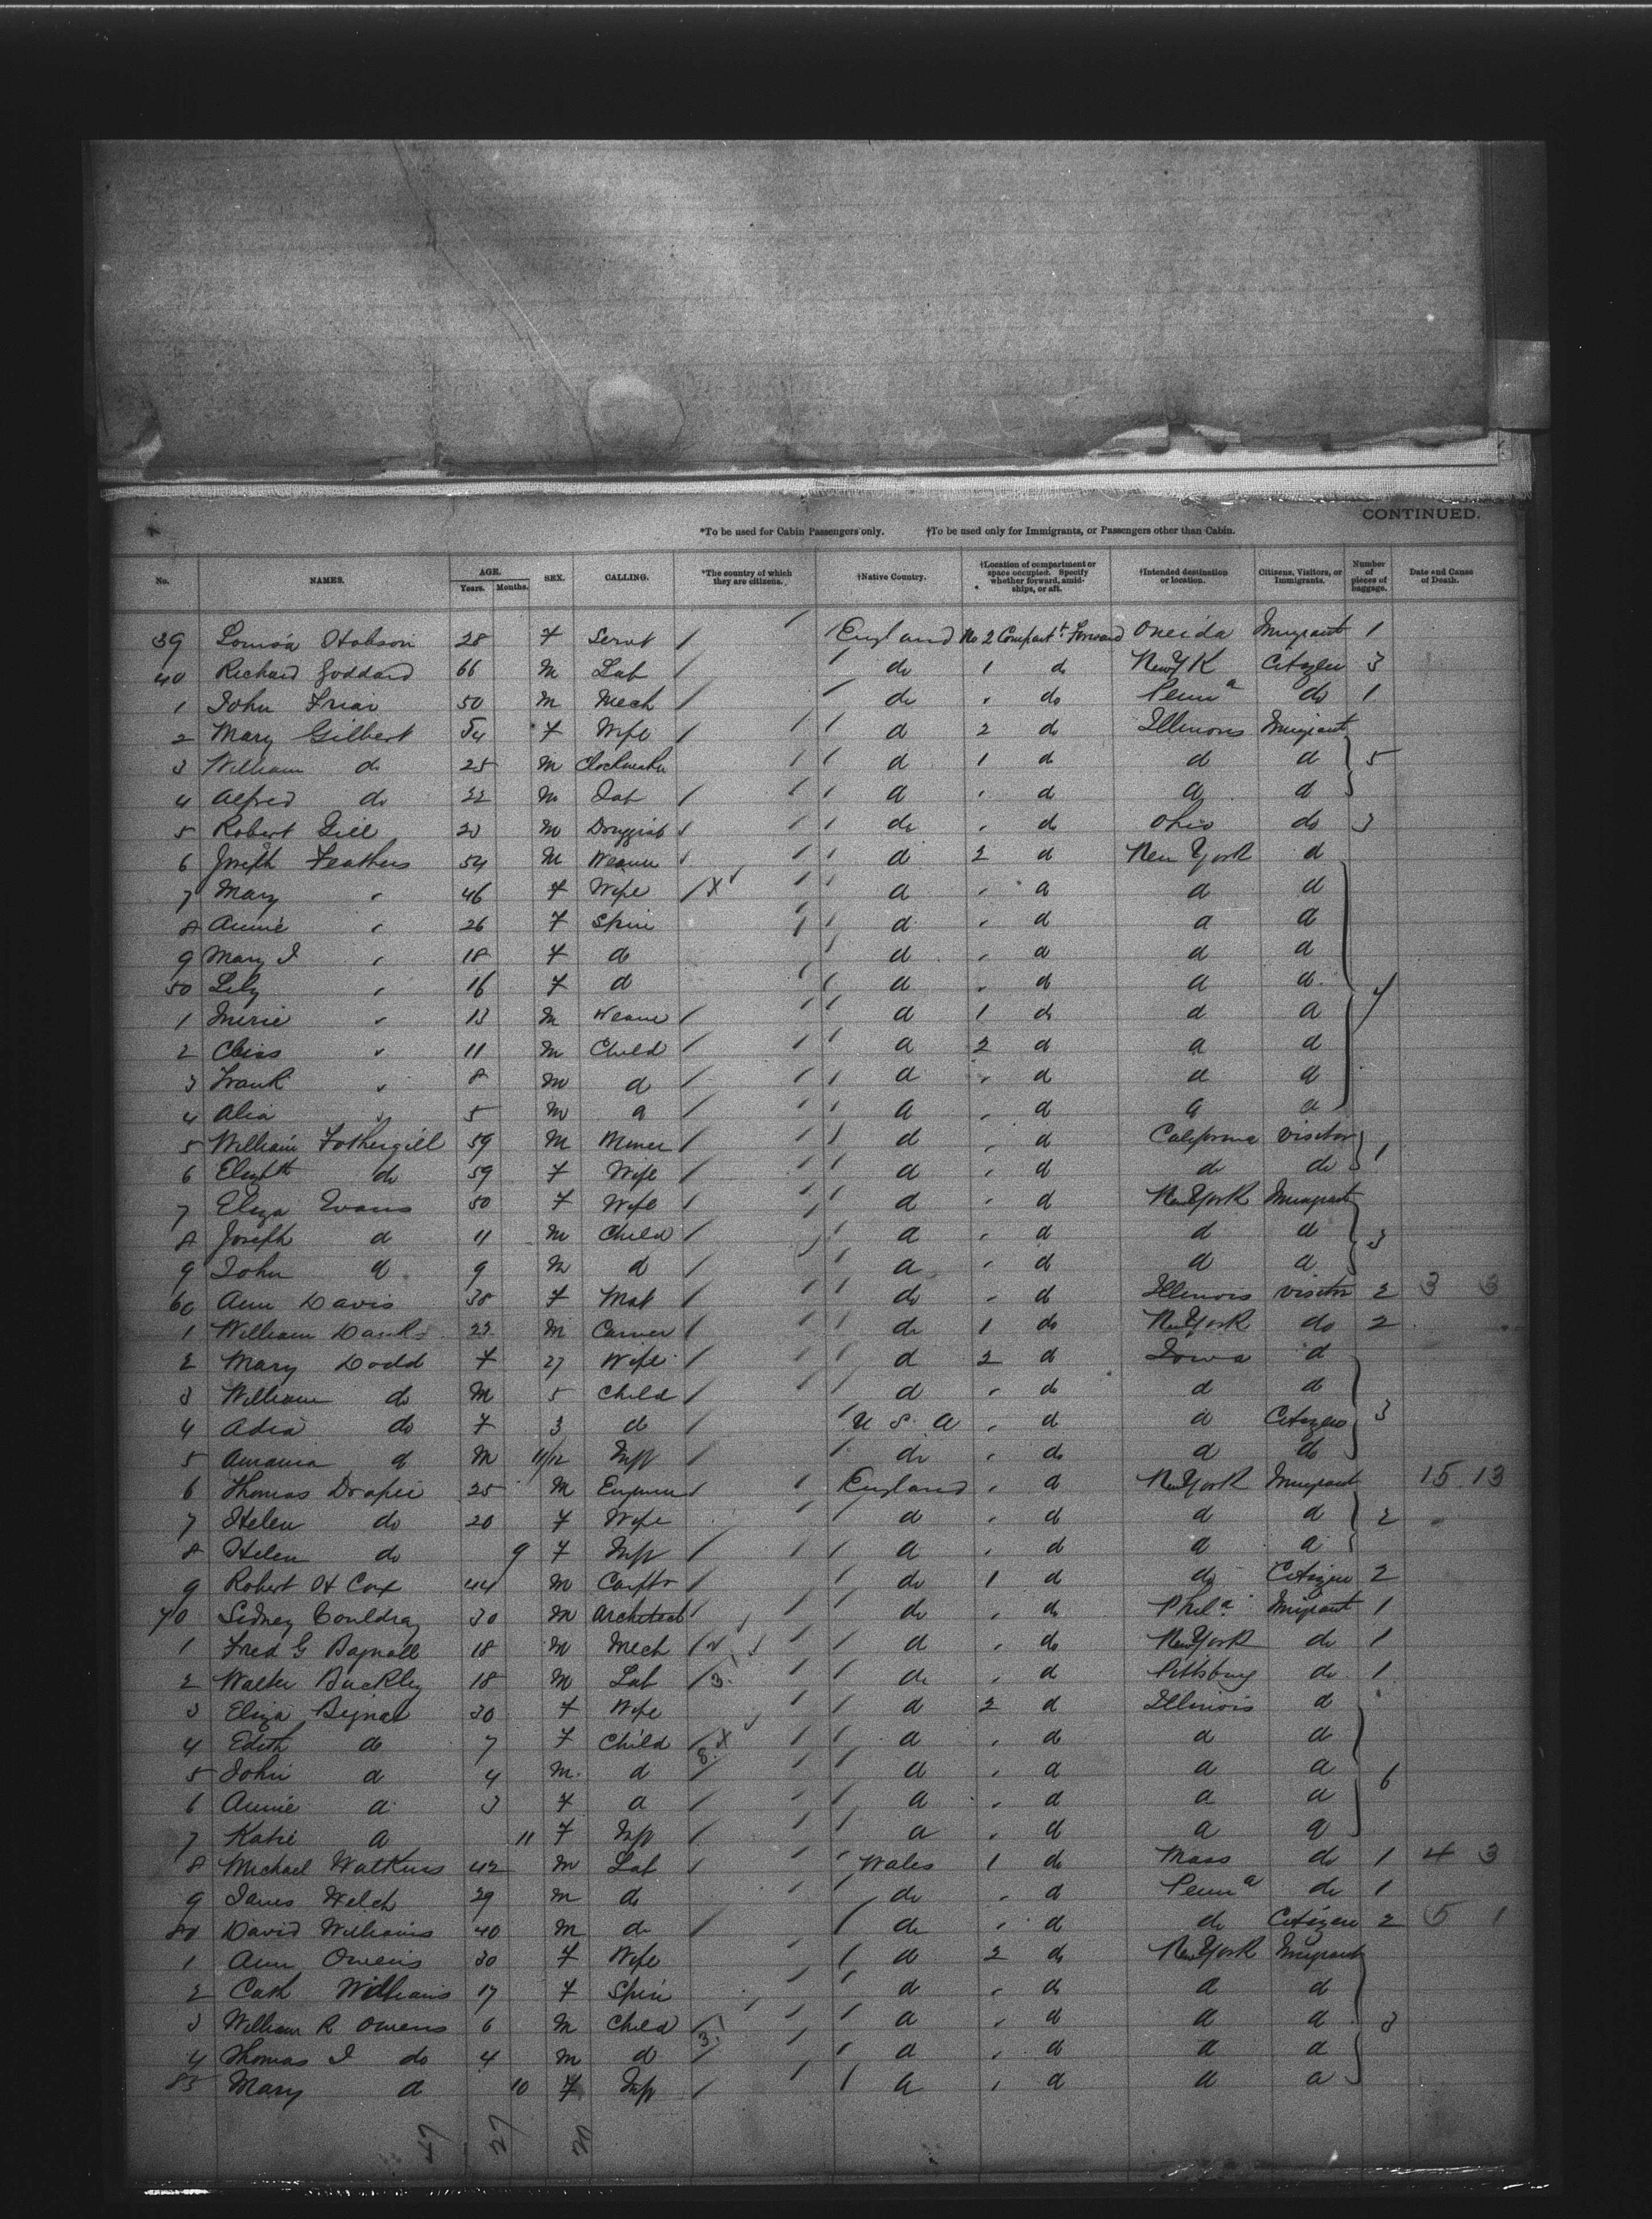 CONTINUED.
*To be used for Cabin Passengers only. †To be used only for Immigrants, or Passengers other than Cabin.
No. NAMES. AGE. Years. Months. SEX. CALLING. *The country of which they are citizens. †Native Country. †Location of compartment or space occupied. Specify whether forward, amidships, or aft. †Intended destination or location. Citizens, Visitors, or Immigrants. Number of pieces of baggage. Date and Cause of Death.
39 Louisa Hobson 28 F Servt England No 2 Compartt Forward Oneida Imigrant 1
40 Richard Goddard 66 M Lab do 1 do New Yk Citizen 3
1 John Friar 50 M Mech do " do Penna do 1
2 Mary Gilbert 54 F Wife d 2 do Illinois Imigrant
3 William do 25 M Clockmaker d 1 d d d 5
4 Alfred do 22 M Lab d " d d d
5 Robert Gill 20 M Druggist do " do Ohio do 3
6 Joseph Feathers 54 M Weaver d 2 d New York d
7 Mary " 46 F Wife X d " d d d
8 Annie " 26 F Spin d " d d d
9 Mary J " 18 F d d " d d d
50 Lily " 16 F d d " d d d
1 " 13 M Weaver d 1 do d d
2 " 11 M Child d 2 d d d
3 Frank " 8 M d d " d d d
4 " 5 M d d " d d d
5 William Fothergill 59 M Miner d " d California Visitor 1
6 Elizbth do 59 F Wife d " d do do
7 Eliza Evans 50 F Wife d " d New York Imigrant
8 Joseph d 11 M Child d " d d d 3
9 John d 9 M d d " d d d
60 Ann Davis 38 F Mat do " d Illinois Visitor 2 3 3
1 William Danks 22 M Carver do 1 do New York do 2
2 Mary Dodd F 27 Wife d 2 d Iowa d
3 William do M 5 Child d " do d d
4 Adia do F 3 d U S A " d d Citizens 3
5 d M 11/12 Inft do " do d do
6 Thomas Draper 25 M England " d New York Imigrant 15 13
7 Helen do 20 F Wife d " d d d 2
8 Helen do 9 F Inft d " d d d
9 Robert H Cox 44 M Carptr do 1 d do Citizen 2
70 Sidney Couldray 30 M Architect do " do Phila Imigrant 1
1 Fred G Bagnall 18 M Mech d " do New York do 1
2 Walter Buckley 18 M Lab 3 do " d Pittsburg do 1
3 Eliza 30 F Wife d 2 d Illinois d
4 Edith do 7 F Child X d " do d d
5 John d 4 M d 8 d " d d d 6
6 Annie d 3 F d d " d d d
7 Katie d 11 F Inft d " d d d
8 Michael Watkins 42 M Lab Wales 1 do Mass do 1 4 3
9 James Welch 29 M do do " d Penna do 1
80 David Williams 40 M do do " d do Citizen 2 5 1
1 Ann Owens 30 F Wife d 2 do New York Imigrant
2 Cath Williams 17 F Spin d " do d d
3 William R Owens 6 M Child 3 d " d d d 3
4 Thomas J do 4 M d d " d d d
85 Mary d 10 F Inft d " d d d
47 27 20